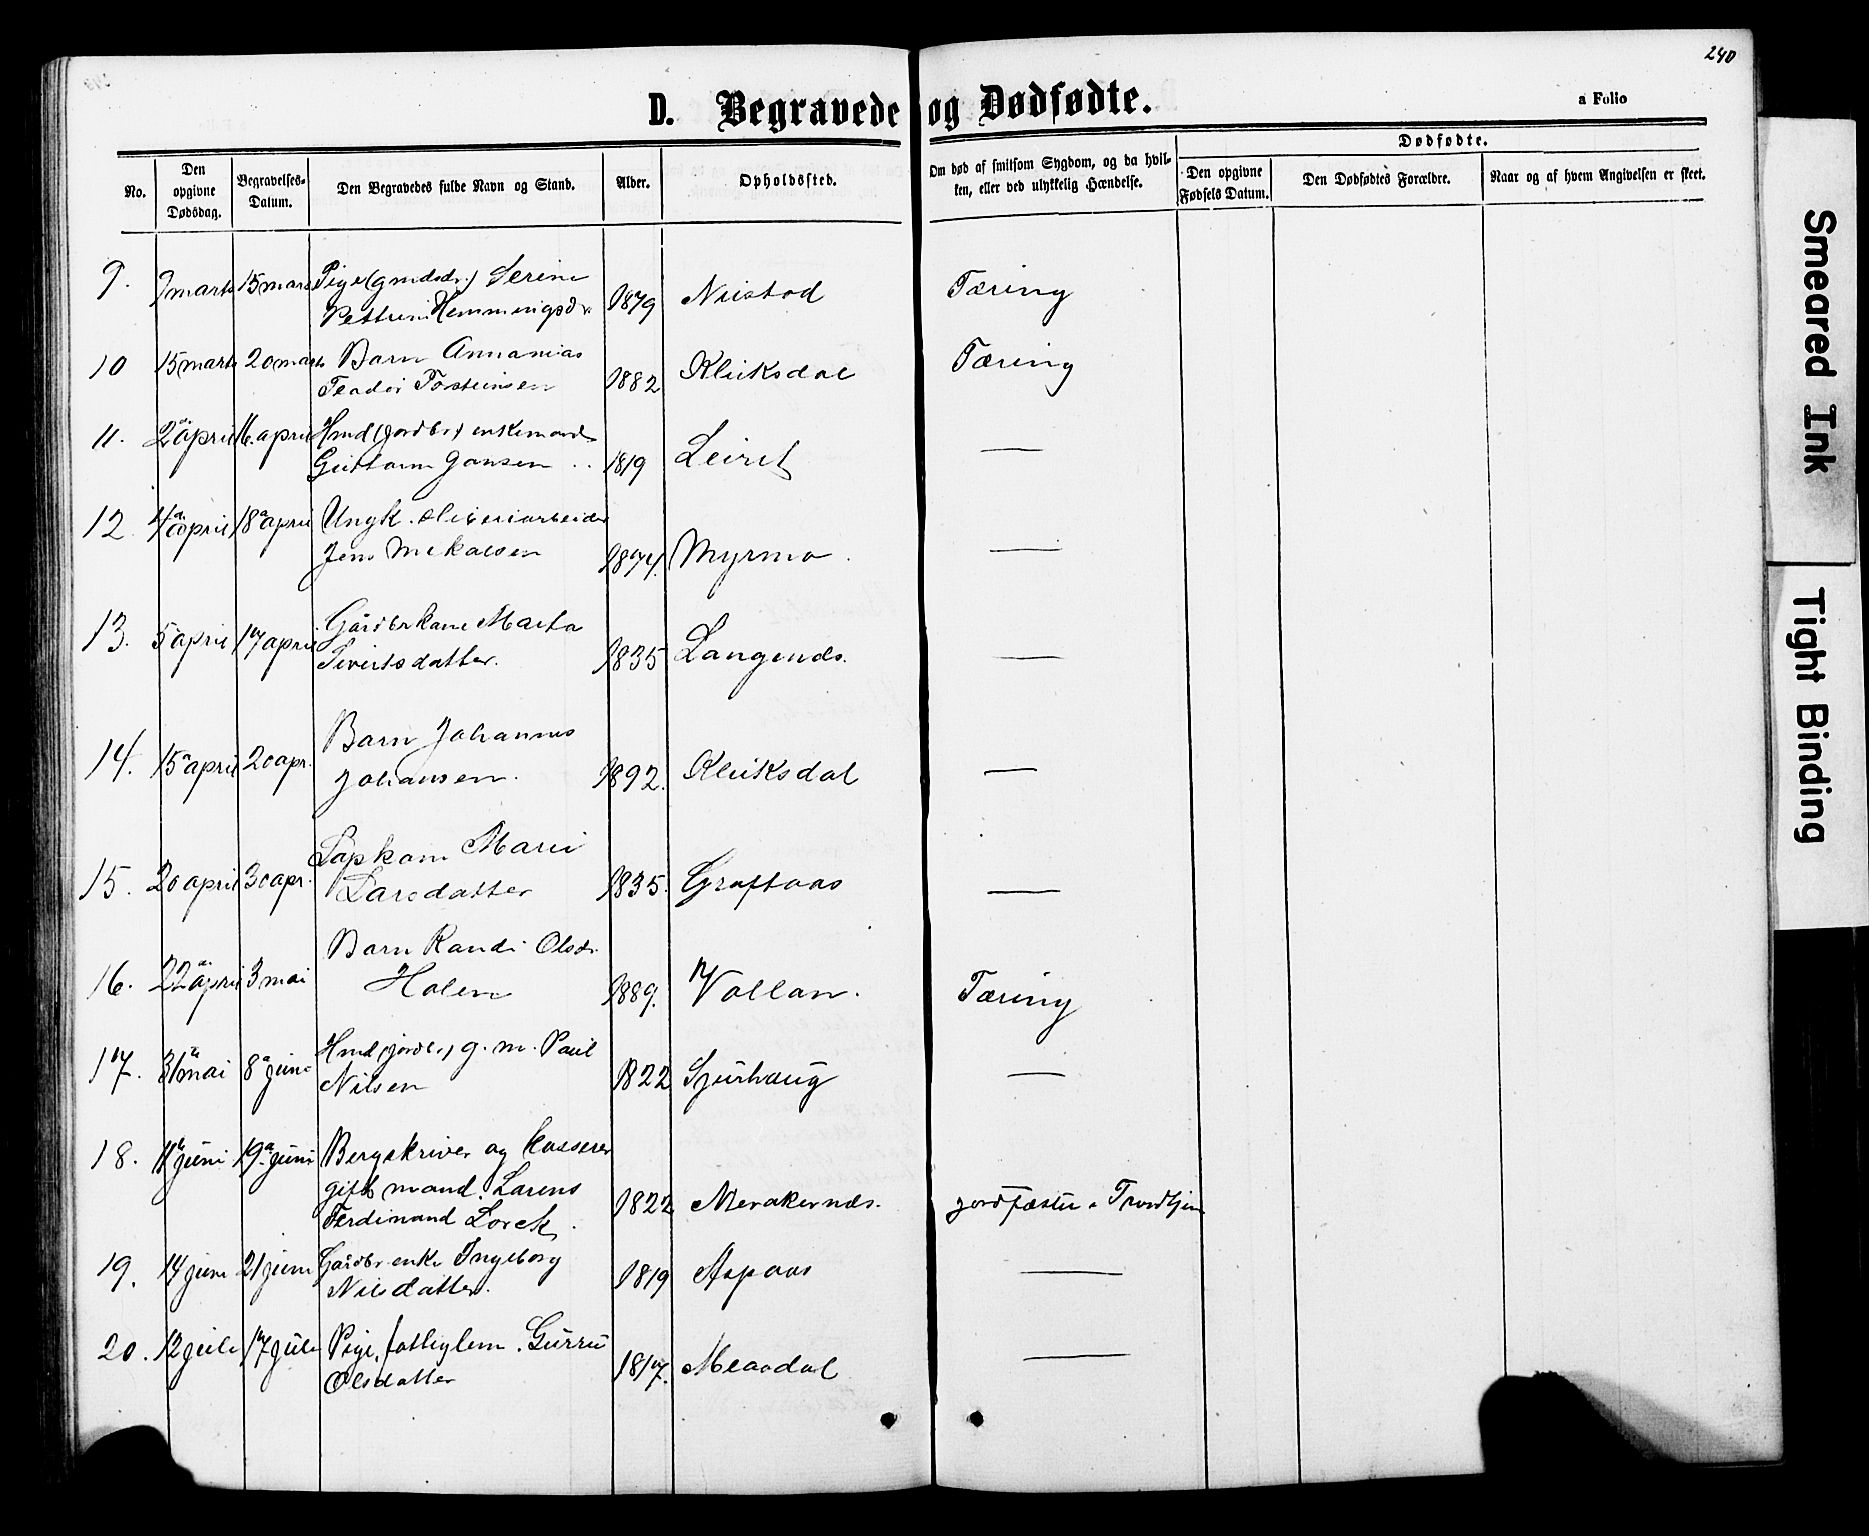 240
D. Begravede og Dødfødte.
a Folio
No.
Den opgivne Dødsdag.
Begravelses-Datum.
Den Begravedes fulde Navn og Stand.
Alder.
Opholdssted.
Om død af smitsom Sygdom, og da hvilken, eller ved ulykkelig Hændelse.
Dødfødte.
Den opgivne Fødsels Datum.
Den Dødfødtes Forældre.
Naar og af hvem Angivelsen er skeet.
9. 9 marts 15 mars Pige (gmdsdr.) Serine
Petrine Hemmingsdr. 1879 Nustad Tæring
10 15 marts 20 marts Barn Annanias
Teodor Tosteinsen 1882 Kluksdal Tæring
11. 2 april 16. april Hmd (jordbr) enkemand
Guttorm Jonsen 1819 Leiret —
12 4 april 18 april Ungk.
Jens Mekalsen 1874. Myrmo. —
13. 5 april 17 april Gårdbrkane Marta
Sivertsdatter. 1835 Langends. —
14. 15 april 20 apr. Barn Johannes
Johansen. 1892. Kluksdal —
15. 20 april 30 apr. Lapkone Marie
Larsdatter 1835. Graftaas —
16. 22 april 3 mai Barn Randi Olsdr.
Halen 1889. Vollan. Tæring
17. 31 mai 8 juni Hmd (jordbr.) g. m. Paul
Nilsen 1822 Sjurhaug —
18. 11 juni 19. juni Bergskriver og kasserer
gift mand. Larens
Ferdinand Lorck. 1822 Merakernæs. jordfæstet i Trondhjem
19. 14 juni 21 juni Gårdbr enke Ingeborg
Nilsdatter. 1819 Aspaas —
20. 12 juli 17 juli Pige, fattiglem. Gurru
Olsdatter 1817. Meaadal —
Smeared Ink
Tight Binding